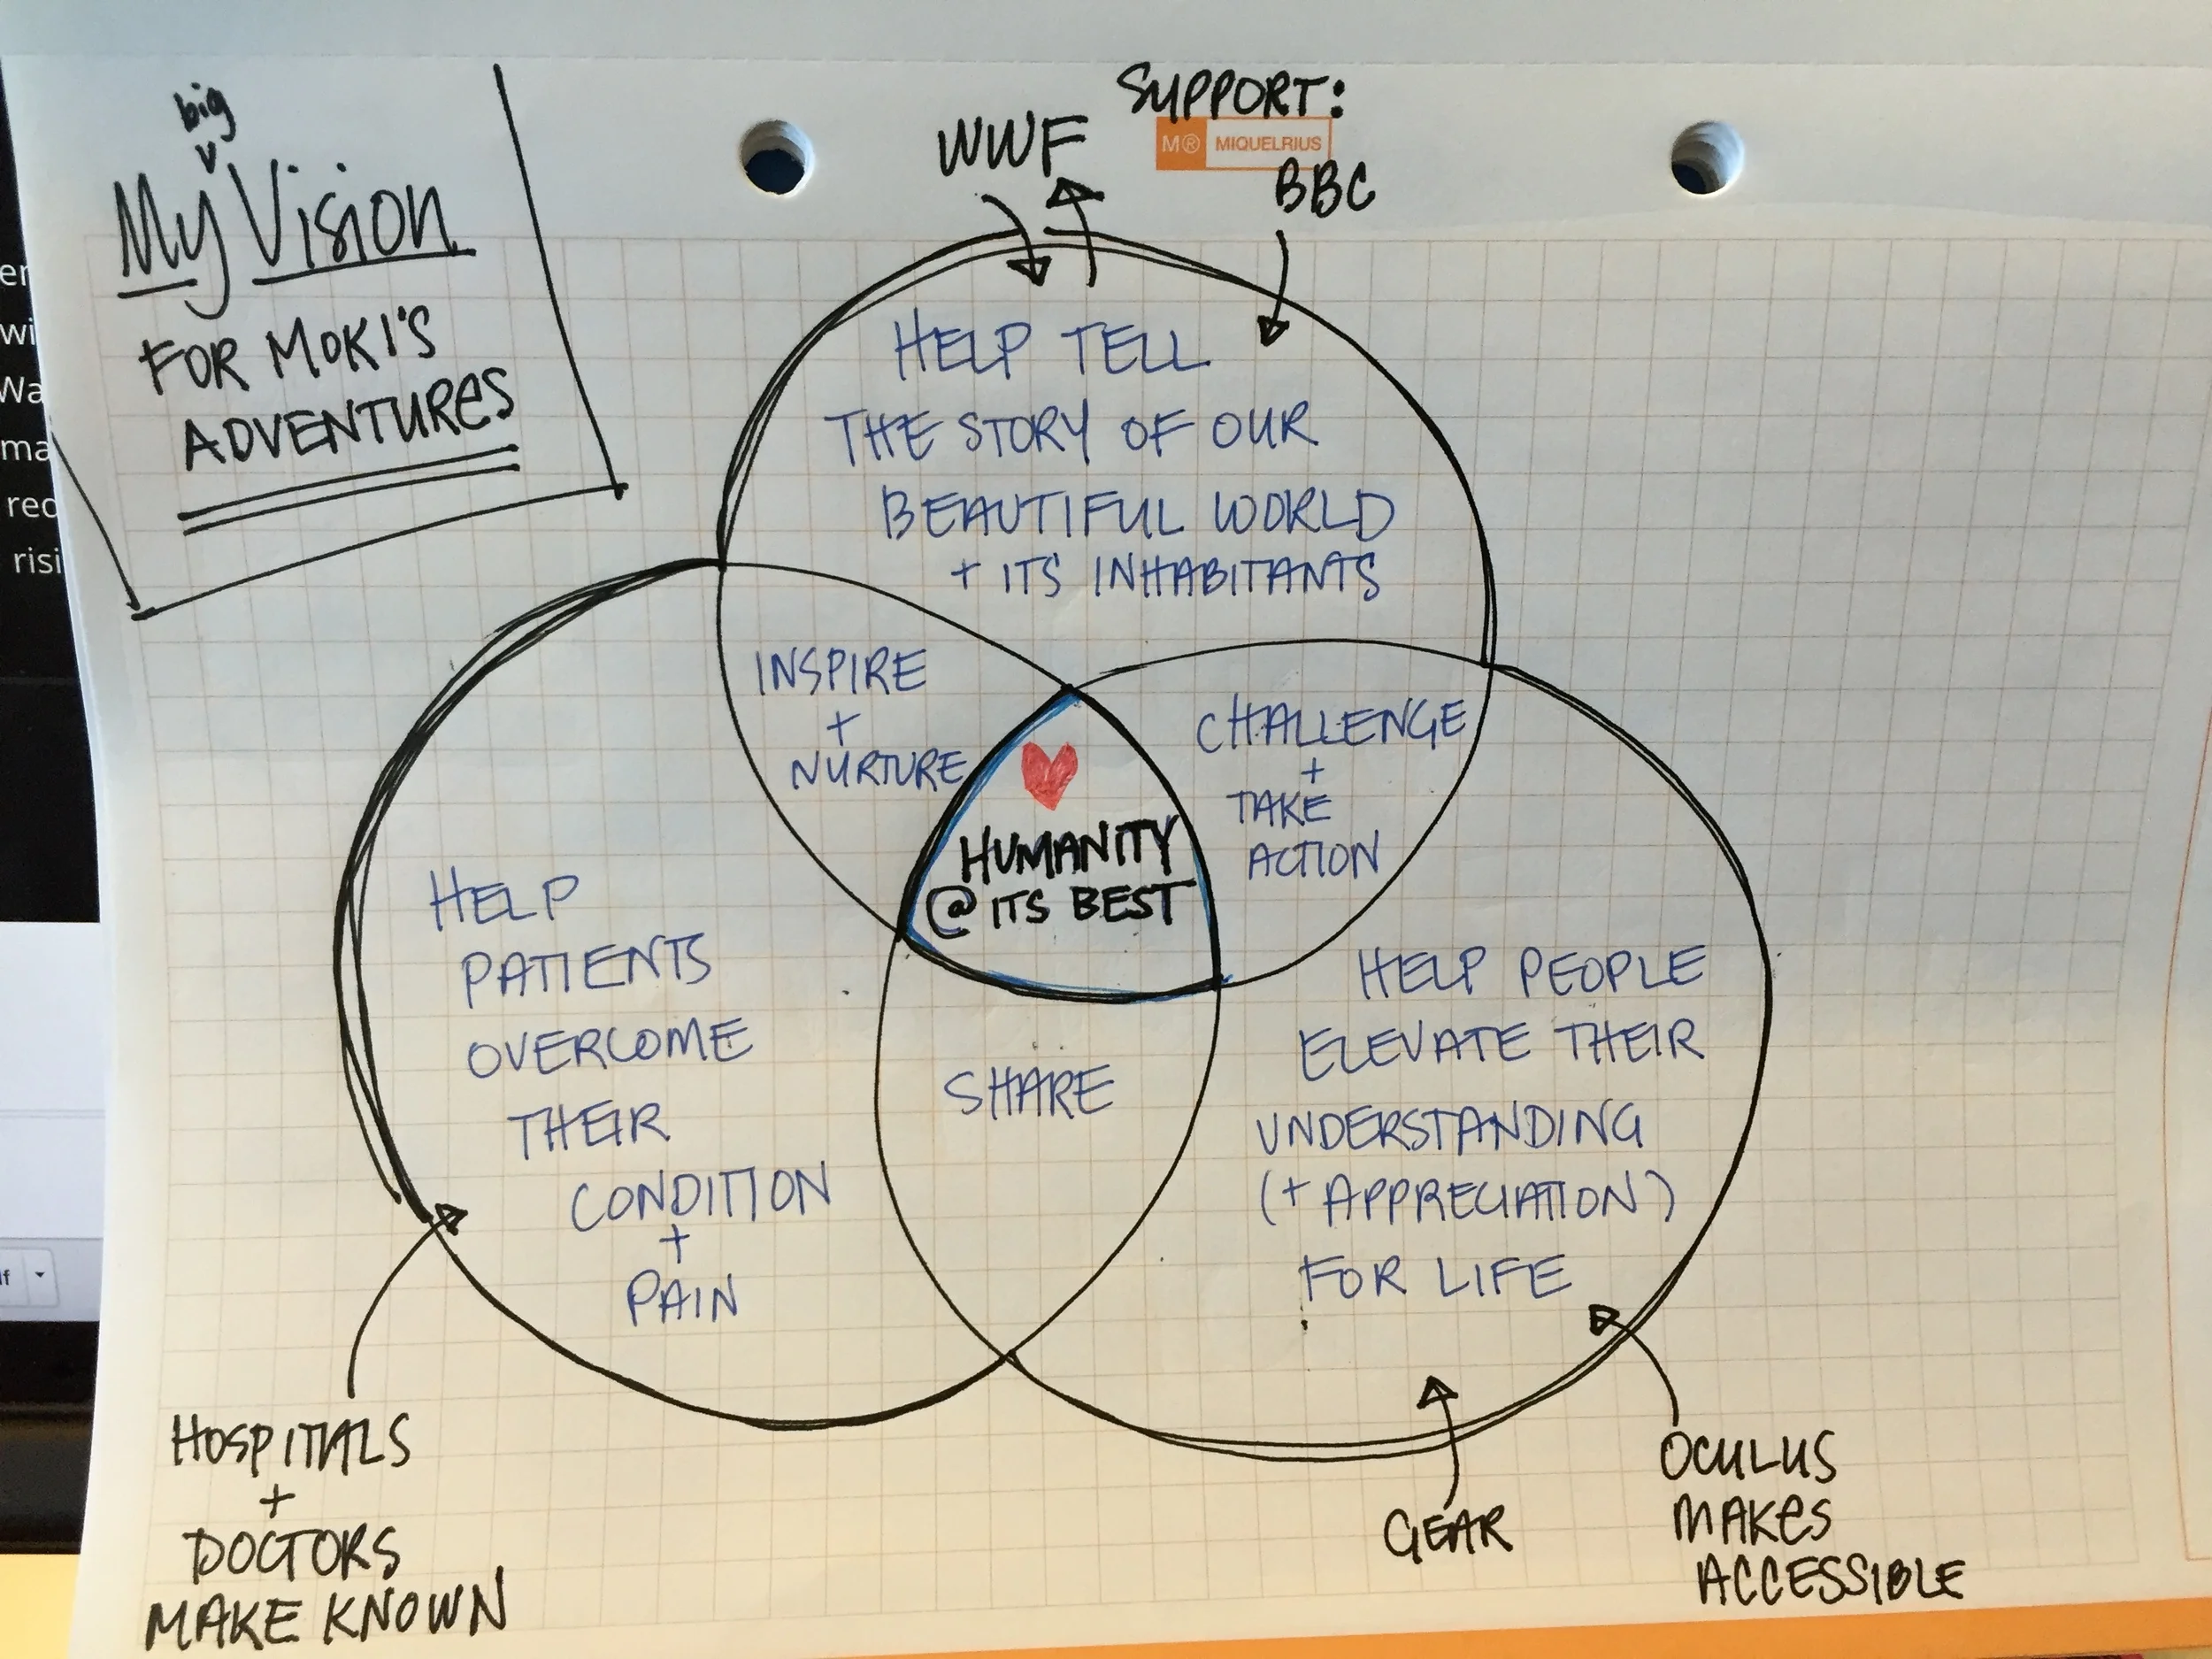 big
My Vision
FOR MOKI'S
ADVENTURES
SUPPORT:
WWF
M® MIQUELRIUS
BBC
HELP TELL
THE STORY OF OUR
BEAUTIFUL WORLD
+ ITS INHABITANTS
INSPIRE
+
NURTURE
CHALLENGE
+
TAKE
ACTION
HUMANITY
@ ITS BEST
HELP
PATIENTS
OVERCOME
THEIR
CONDITION
+
PAIN
SHARE
HELP PEOPLE
ELEVATE THEIR
UNDERSTANDING
(+ APPRECIATION)
FOR LIFE
HOSPITALS
+
DOCTORS
MAKE KNOWN
GEAR
OCULUS
MAKES
ACCESSIBLE